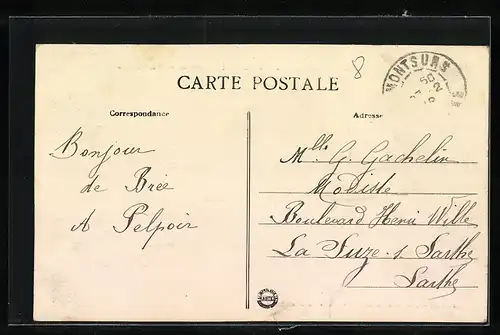 8
MONTSURS
CARTE POSTALE
Correspondance
Adresse
Bonjour
de Brée
A Pelpoir
Mlle G. Gachelin
Modiste
Boulevard Henri Wille
La Suze s. Sarthe
Sarthe